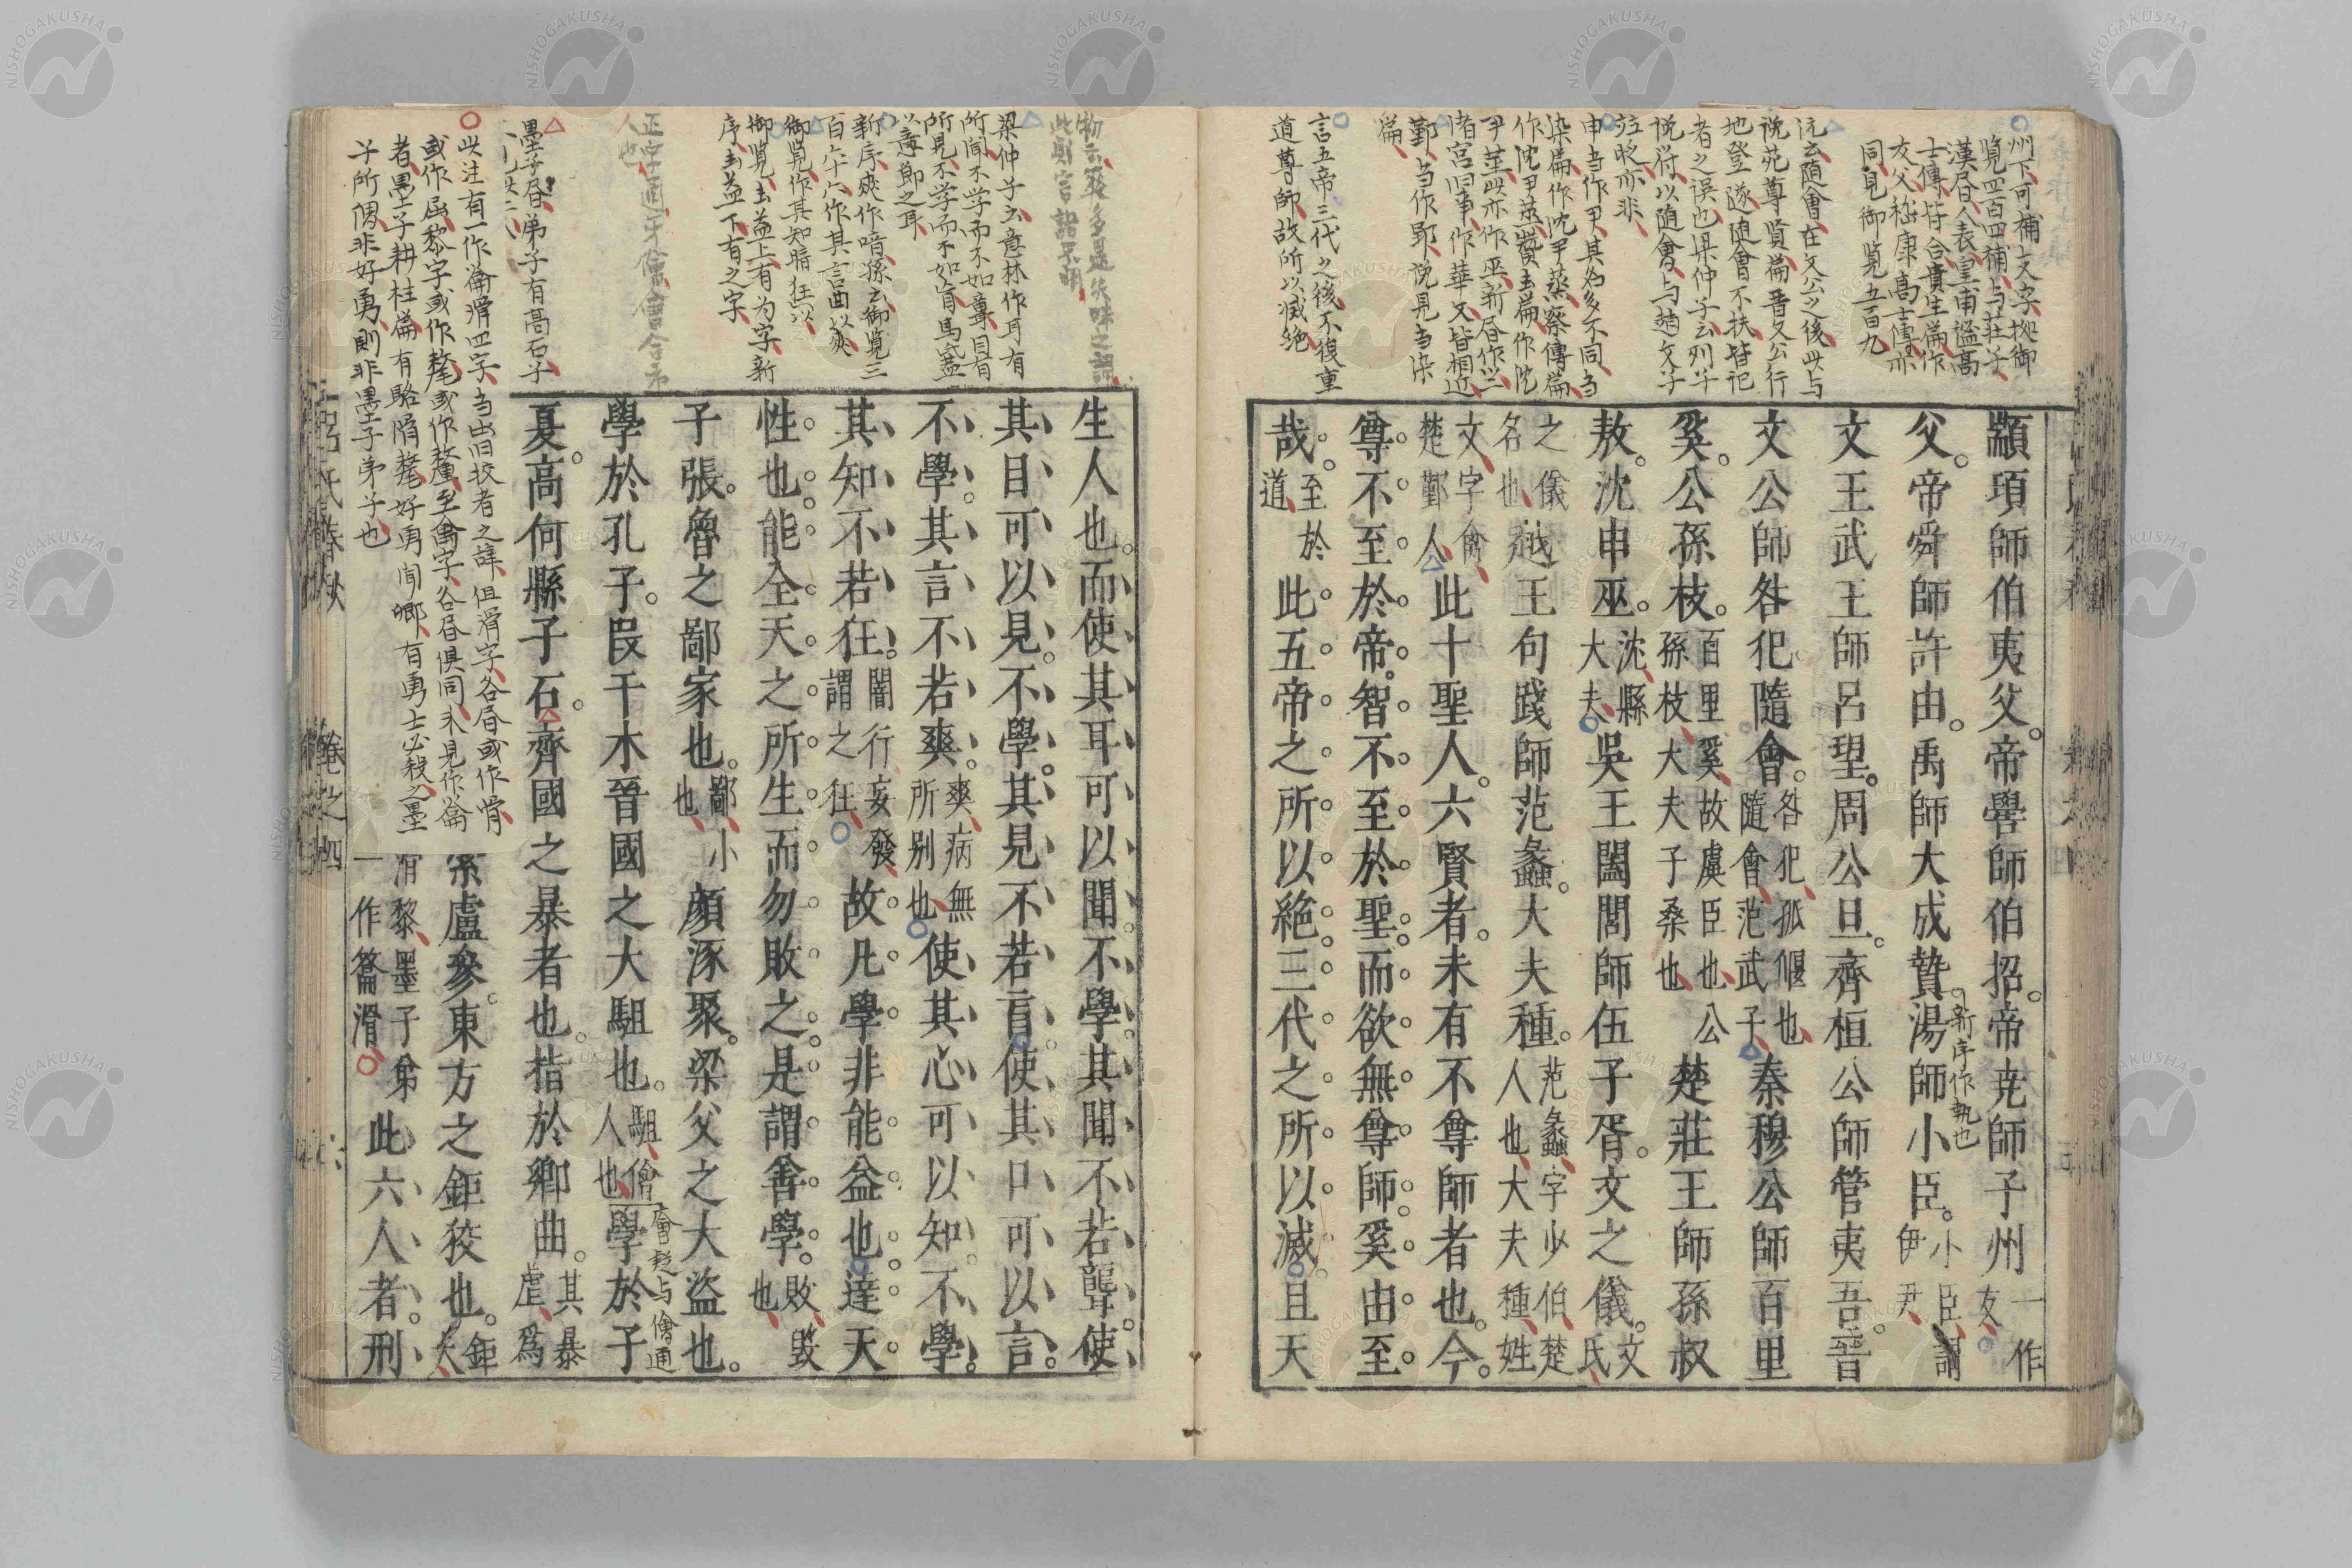 州下可補支字拠御
覧四百四補与荘子
漢昏人表皇甫謐髙
士傳皆合賁生篇作
友父嵇康高士傳亦
同見御覧五百九
沅云随會在文公之後此与
説苑尊賢篇晋文公行
地登隧随會不扶皆記
者之误也梁仲子云列子
説符以随會与趙文子
竝時亦非
申当作尹其名多不同当
染篇作沈尹蒸察傳篇
作沈尹莖賛去篇作沈
尹莖此亦作巫新昏作巫
渚宮旧事作華又皆相近
鄞当作郢説見当染
篇
言五帝三代之後不復重
道尊師故所以滅絶
顓頊師伯夷父帝嚳師伯招帝尭師子州一作
友
父帝舜師許由禹師大成贄湯師小臣小臣謂
伊尹
新序作執也
文王武王師呂望周公旦齊桓公師管夷吾晉
文公師咎犯隨會咎犯狐偃也
隨會范武子秦穆公師百里
奚公孫枝百里奚故虞臣也公
孫枝大夫子桑也楚莊王師孫叔
敖沈申巫沈縣
大夫吳王闔閭師伍子胥文之儀文
氏
之儀
名也越王句踐師范蠡大夫種范蠡字少伯楚
人也大夫種姓
文字禽
楚鄞人此十聖人六賢者未有不尊師者也今
尊不至於帝智不至於聖而欲無尊師奚由至
哉至於
道此五帝之所以絶三代之所以滅且天
物云爽多是失味之謂
此則言語不明
梁仲子云意林作耳有
所聞不学而不如聾目有
所見不学而不如盲馬蓋
以意節之耳
新序爽作喑孫云御覧三
百六十六作其言曲以爽
御覧作其知暗狂以
御覧去益上有为字新
序去益下有之字
正字通牙儈會合市
人也
墨子昏弟子有高石子
此注有一作籥滑四字当出旧挍者之辞但滑字各昏或作骨
或作屈黎字或作氂或作釐至禽字各昏俱同未見作籥
者墨子耕柱篇有駱滑氂好勇聞鄉有勇士必殺之墨
子所偶非好勇則非墨子弟子也
生人也而使其耳可以聞不學其聞不若聾使
其目可以見不學其見不若盲使其口可以言
不學其言不若爽爽病無
所別也使其心可以知不學
其知不若狂闇行妄發
謂之狂故凡學非能益也達天
性也能全天之所生而勿敗之是謂善學敗毀
也
子張魯之鄙家也鄙小
也顔涿聚梁父之大盗也
學於孔子叚干木晉國之大駔也駔儈
人也學於子
會疑与儈通
夏高何縣子石齊國之暴者也指於鄉曲其暴
虐爲
索盧參東方之鉅狡也鉅
大
滑黎墨子弟
一作籥滑此六人者刑
呂氏春秋 卷之四 六